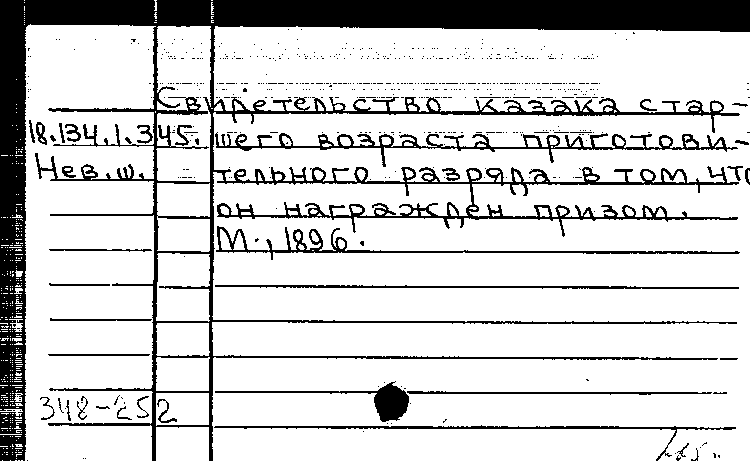 Свидетельство казака стар-
18.134.1.345. шего возраста приготови-
Нев.ш. тельного разряда в том, что
он награжден призом.
М., 1896.
348-252